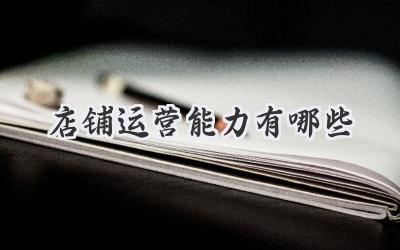 店铺运营能力有哪些